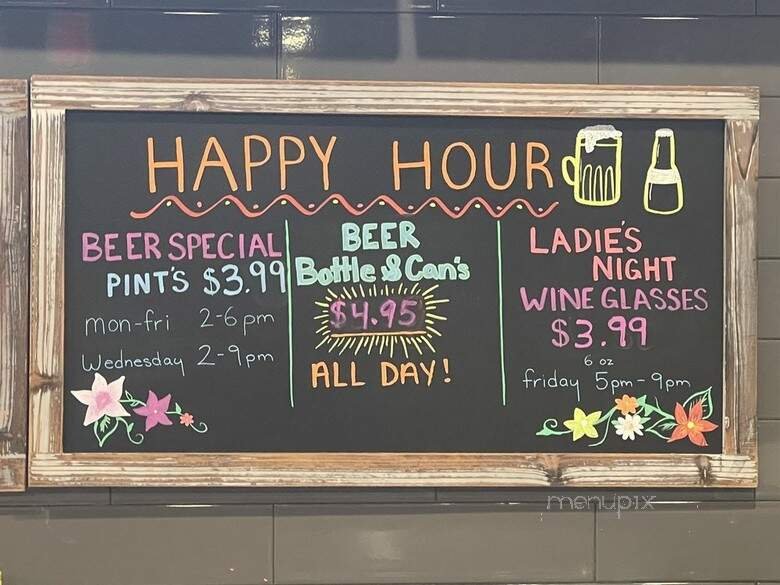 HAPPY HOUR
BEER SPECIAL
PINT'S $3.99
mon-fri 2-6pm
Wednesday 2-9pm
BEER
Bottle & Can's
$4.95
ALL DAY!
LADIE'S
NIGHT
WINE GLASSES
$3.99
6 oz
friday 5pm-9pm
menupix